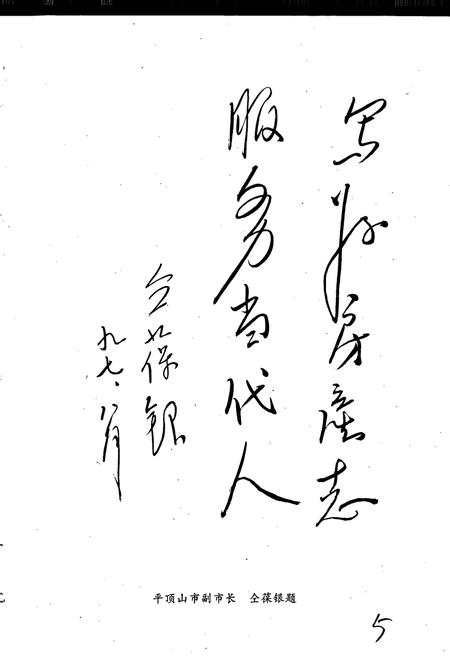 写好房产志
服务当代人
仝葆银
九七、八月
平顶山市副市长　仝葆银题
5